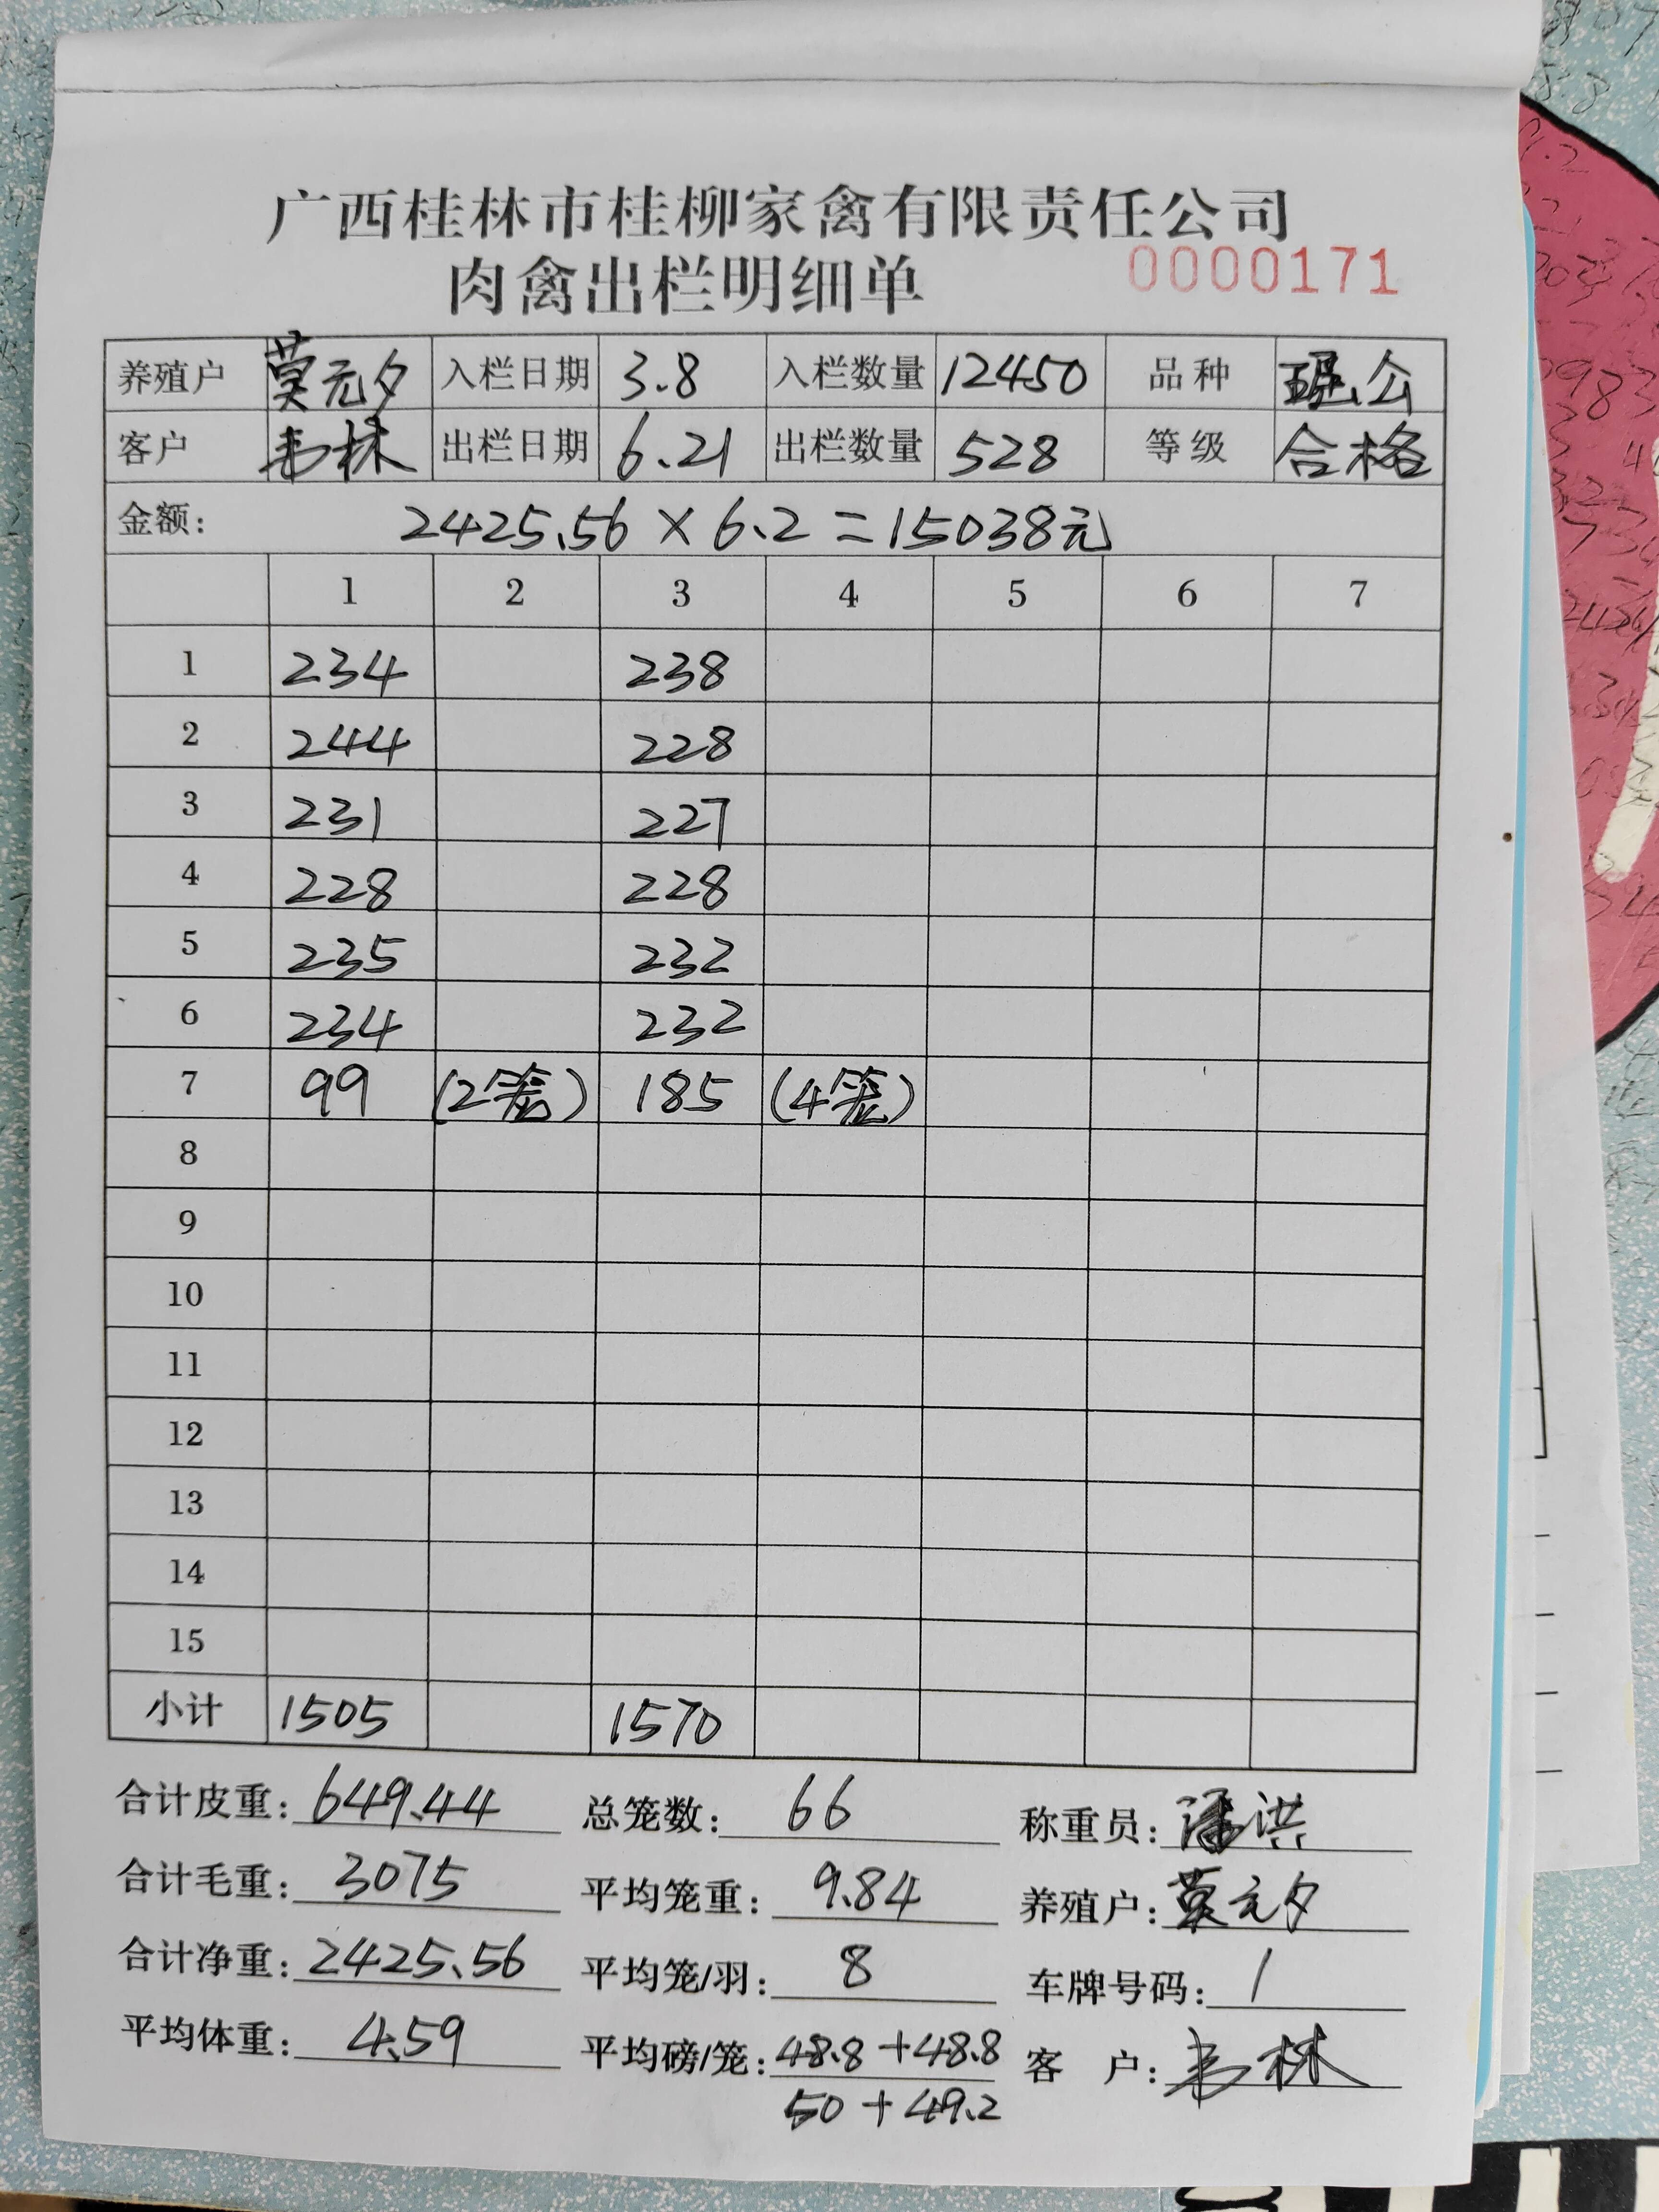 广西桂林市桂柳家禽有限责任公司
肉禽出栏明细单 0000171
养殖户 莫元夕 入栏日期 3.8 入栏数量 12450 品种 公
客户 韦林 出栏日期 6.21 出栏数量 528 等级 合格
金额: 2425.56 × 6.2 = 15038元
1 2 3 4 5 6 7
1 234 238
2 244 228
3 231 227
4 228 228
5 235 232
6 234 232
7 99 (2笼) 185 (4笼)
8
9
10
11
12
13
14
15
小计 1505 1570
合计皮重: 649.44 总笼数: 66 称重员: 潘洪
合计毛重: 3075 平均笼重: 9.84 养殖户: 莫元夕
合计净重: 2425.56 平均笼/羽: 8 车牌号码: 1
平均体重: 4.59 平均磅/笼: 48.8 + 48.8 客 户: 韦林
50 + 49.2